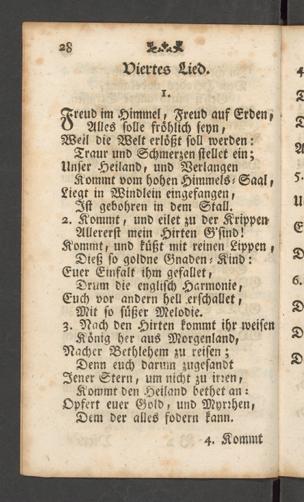 28
Viertes Lied.
1.
Freud im Himmel, Freud auf Erden,
Alles solle fröhlich seyn,
Weil die Welt erlößt soll werden:
Traur und Schmerzen stellet ein;
Unser Heiland, und Verlangen
Kommt vom hohen Himmels-Saal,
Liegt in Windlein eingefangen,
Ist gebohren in dem Stall.
2. Kommt, und eilet zu der Krippen
Allererst mein Hirten G'sind!
Kommt, und küßt mit reinen Lippen,
Dieß so goldne Gnaden-Kind:
Euer Einfalt ihm gefallet,
Drum die englisch Harmonie,
Euch vor andern hell erschallet,
Mit so süßer Melodie.
3. Nach den Hirten kommt ihr weisen
König her aus Morgenland,
Nacher Bethlehem zu reisen;
Denn euch darum zugesandt
Jener Stern, um nicht zu irren,
Kommt den Heiland bethet an:
Opfert euer Gold, und Myrrhen,
Dem der alles fodern kann.
4. Kommt